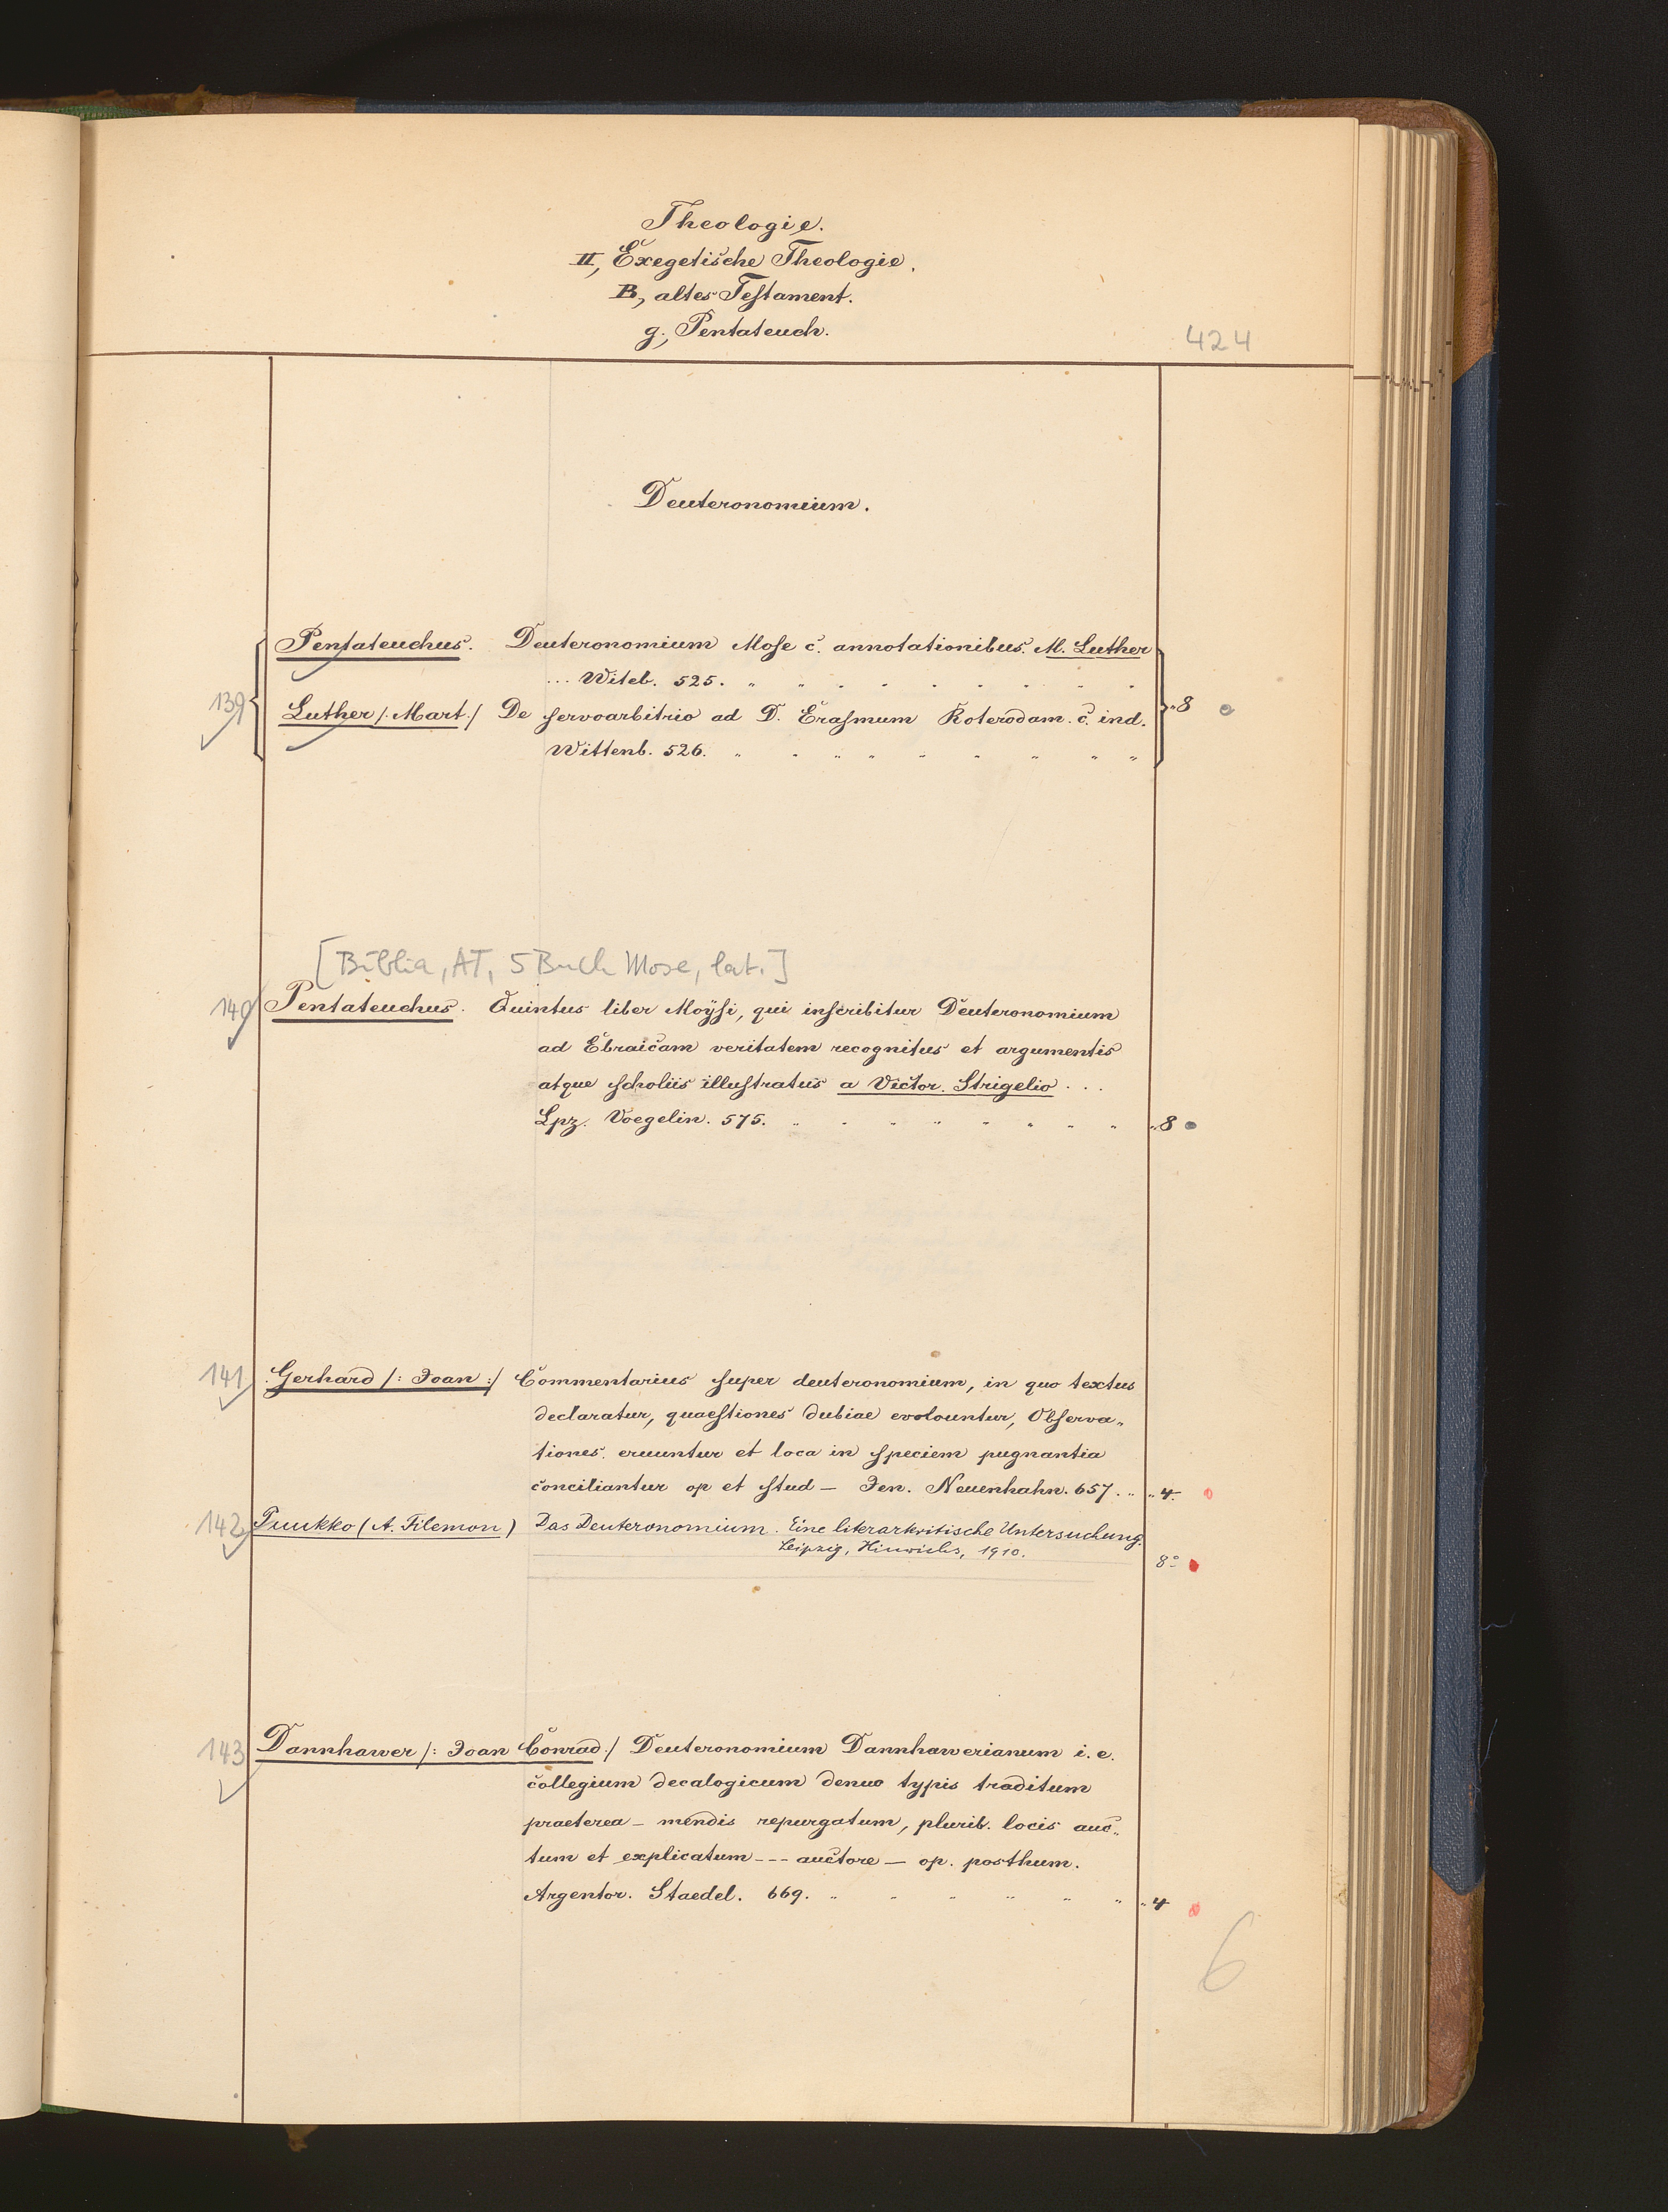 Theologie.
II, Exegetische Theologie.
B, altes Testament.
g, Pentateuch.
424
Deuteronomium.
Pentateuchus. Deuteronomium Mose c. annotationibus. M. Luther
... Witeb. 525.
139 Luther /: Mart :/ De servoarbitrio ad D. Erasmum Roterodam. c. ind. 8
Wittenb. 526.
[Biblia, AT, 5 Buch Mose, lat.]
140 Pentateuchus. Quintus liber Moÿsi, qui inscribitur Deuteronomium
ad Ebraicam veritatem recognitus et argumentis
atque scholiis illustratus a Victor. Strigelio ...
Lpz. Voegelin. 575. 8
141 Gerhard /: Joan :/ Commentarius super deuteronomium, in quo textus
declaratur, quaestiones dubiae evolountur, Observa„
tiones. eruuntur et loca in speciem pugnantia
conciliantur op et stud — Jen. Neuenhahn. 657. 4.
142 Puukko (A. Filemon) Das Deuteronomium. Eine literarkritische Untersuchung.
Leipzig, Hinrichs, 1910.
8°
143 Dannhawer /: Joan Conrad :/ Deuteronomium Dannhawerianum i. e.
collegium decalogicum denuo typis traditum
praeterea — mendis repurgatum, plurib. locis auc„
tum et explicatum --- auctore — op. posthum.
Argentor. Staedel. 669. 4
6